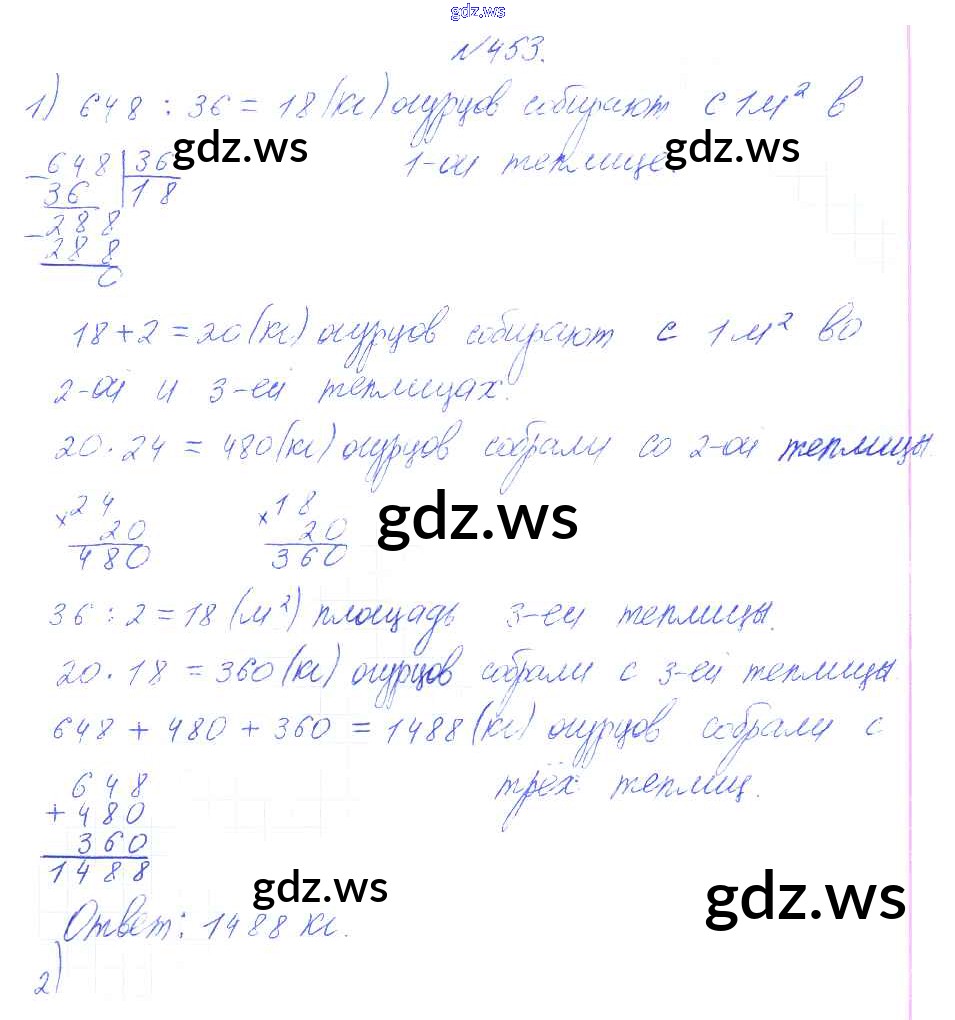 gdz.ws
N453.
1) 648 : 36 = 18 (кг) огурцов собирают с 1 м² в
1-ой теплице.
gdz.ws gdz.ws
- 648 | 36
36 | 18
- 288
288
0
18 + 2 = 20 (кг) огурцов собирают с 1 м² во
2-ой и 3-ей теплицах.
20 · 24 = 480 (кг) огурцов собрали со 2-ой теплицы.
× 24 × 18
20 20
480 360
gdz.ws
36 : 2 = 18 (м²) площадь 3-ей теплицы.
20 · 18 = 360 (кг) огурцов собрали с 3-ей теплицы.
648 + 480 + 360 = 1488 (кг) огурцов собрали с
трёх теплиц.
648
+ 480
360
1488
gdz.ws gdz.ws
Ответ: 1488 кг.
2)